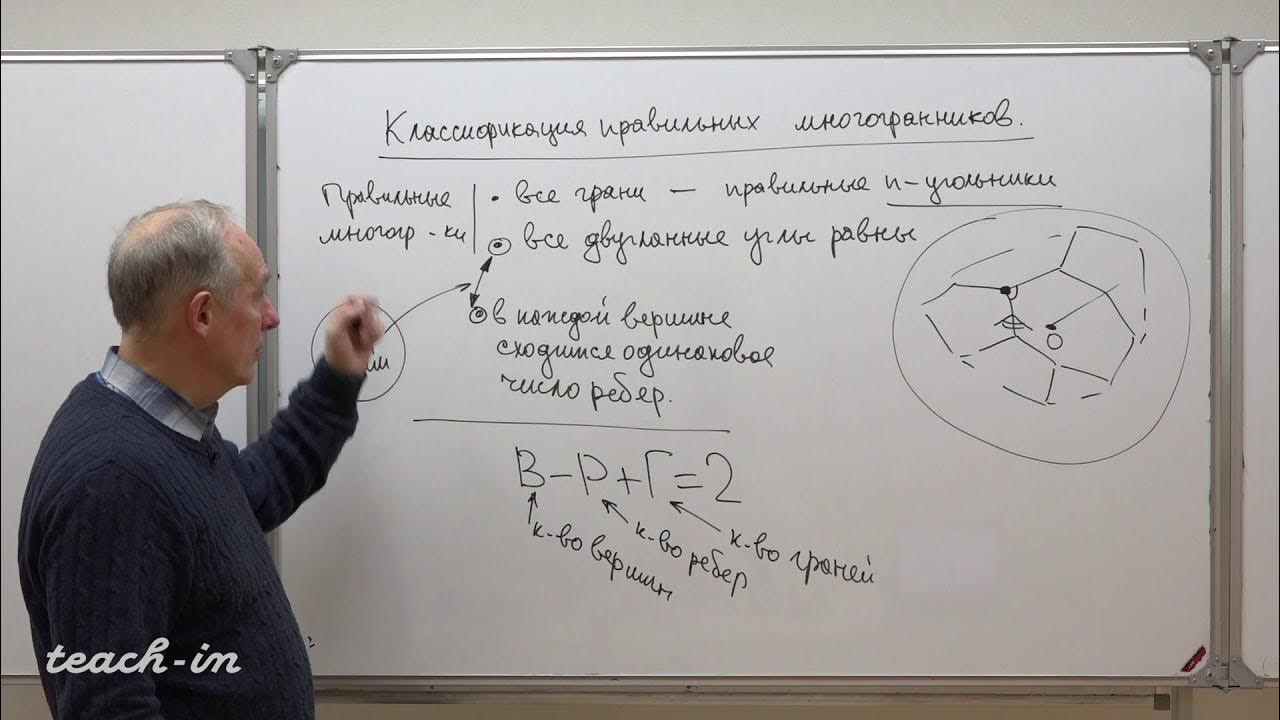 Классификация правильных многогранников.
Правильные
многогр-ки
• все грани — правильные n-угольники
все двугранные углы равны
в каждой вершине
сходится одинаковое
число ребер.
В – Р + Г = 2
к-во вершин
к-во ребер
к-во граней
O
teach-in